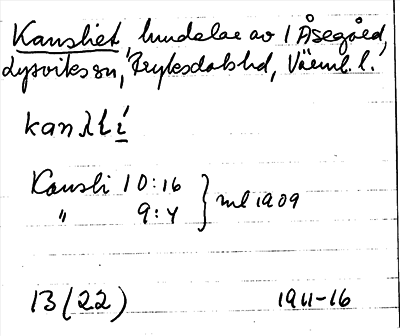 Kansliet, lundelar av 1 Åsegård,
Lysviks sn, Fryksdals hd, Värml. l.
kanʃlí
Kansli 10:16
" 9:4 } ml 1909
13 (22) 1911-16